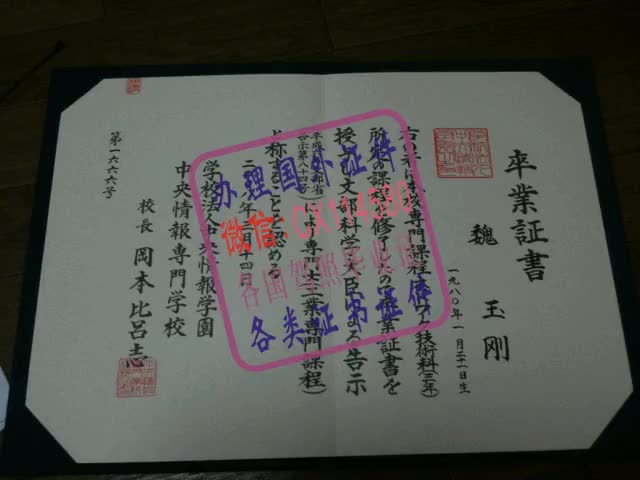 卒業証書
魏 玉 剛
一九八〇年一月二十一日生
右の者は本校専門課程
技術科(三年)
所定の課程を修了したので卒業証書を
授与し文部科学大臣による告示
専門士(工業専門課程)
と称することを認める
学校法人中央情報学園
中央情報専門学校
校長 岡本比呂志
第一六六六号
办理国外证件
微信:CX114590
各国驾照毕业证
各类证书证件